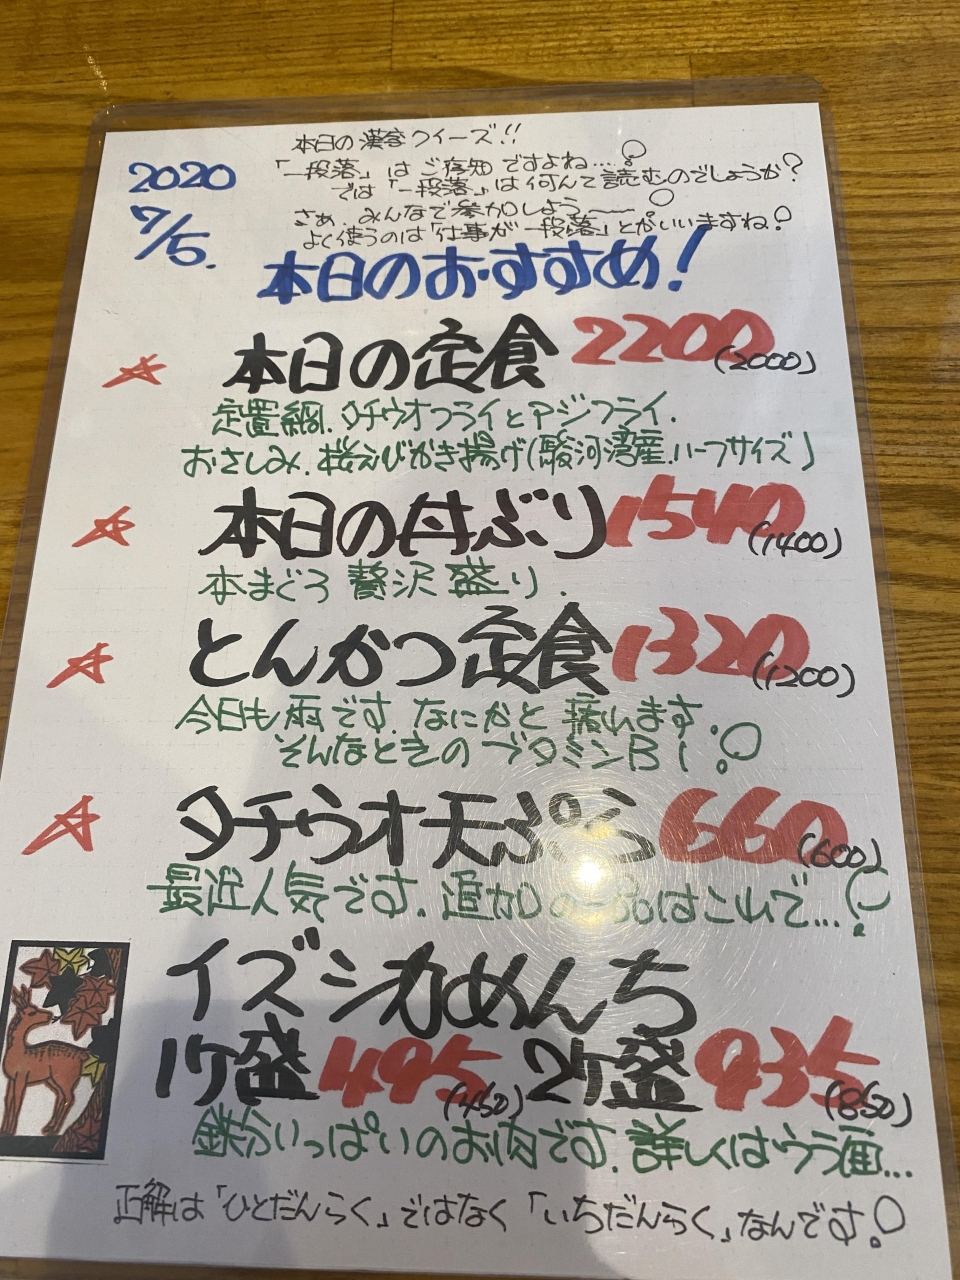 2020
7/5.
本日の漢字クイーズ!!
「一段落」はご存知ですよね…!
では「一段落」は何んて読むのでしょうか?
さぁ、みんなで参加しよう〜〜!
よく使うのは「仕事が一段落」とかいいますね!
本日のおすすめ!
☆ 本日の定食 2200 (2000)
定置網.タチウオフライとアジフライ.
おさしみ.桜えびかき揚げ(駿河湾産.ハーフサイズ)
☆ 本日の丼ぶり 1540 (1400)
本まぐろ贅沢盛り.
☆ とんかつ定食 1320 (1200)
今日も雨です.なにかと疲れます.
そんなときのブタミンB1!
☆ タチウオ天ぷら 660 (600)
最近人気です.追加の一品はこれで…!?
イズシカめんち
1ケ盛 495 (450) 2ケ盛 935 (850)
鉄分いっぱいのお肉です.詳しくはウラ面…
正解は「ひとだんらく」ではなく「いちだんらく」なんです!